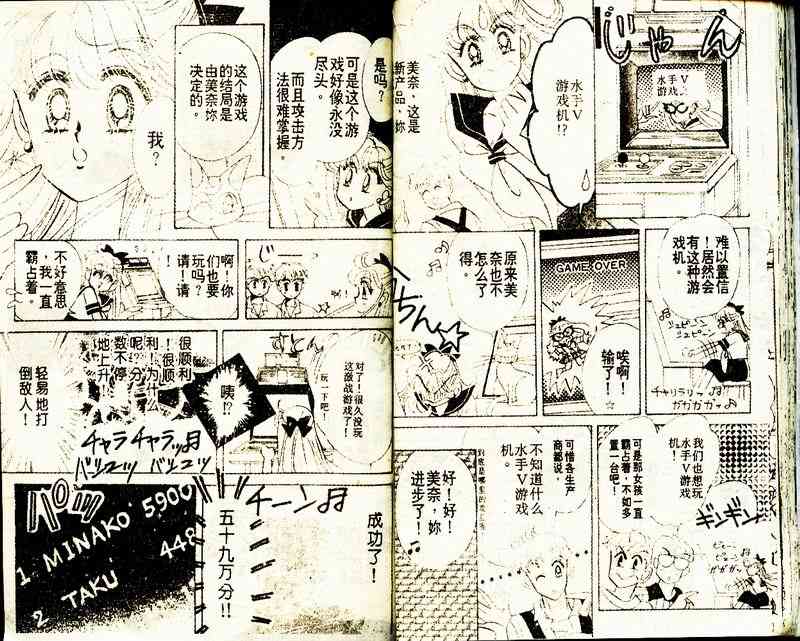 じゃん
水手V
游戏机
水手V
游戏机!?
美奈、这是
新产品、妳
是吗?
可是这个游
戏好像永没
尽头。
而且攻击方
法很难掌握。
这个游戏
的结局是
由美奈妳
决定的。
我?
难以置信
!居然会
有这种游
戏机。
チャリラリッ♪
ガガガガッ♪
GAME OVER
唉啊!
输了!☆
原来美
奈也不
怎么了
得。
ちん☆
じ
啊!你
们也要
玩吗?
请!请
!
不好意思
,我一直
霸占着。
我们也想玩
水手V游戏
机!
可是那女孩一直
霸占着,不如多
置一台吧!
ギンギン
ガガガッ
可惜各生产
商都说,
不知道什么
水手V游戏
机。
好!好!
美奈,妳
进步了!♪
对了!很久没玩
这激战游戏了!
玩一下吧!
すとん
咦!?
很顺利
!很顺
利!为什么
呢?分
数不停
地上升
轻易地打
倒敌人!
チャラチャラッ♪
バシュッ バシュッ
成功了!
チーン♪
五十九万分!!
パッ
1. MINAKO 5900
2 TAKU 448